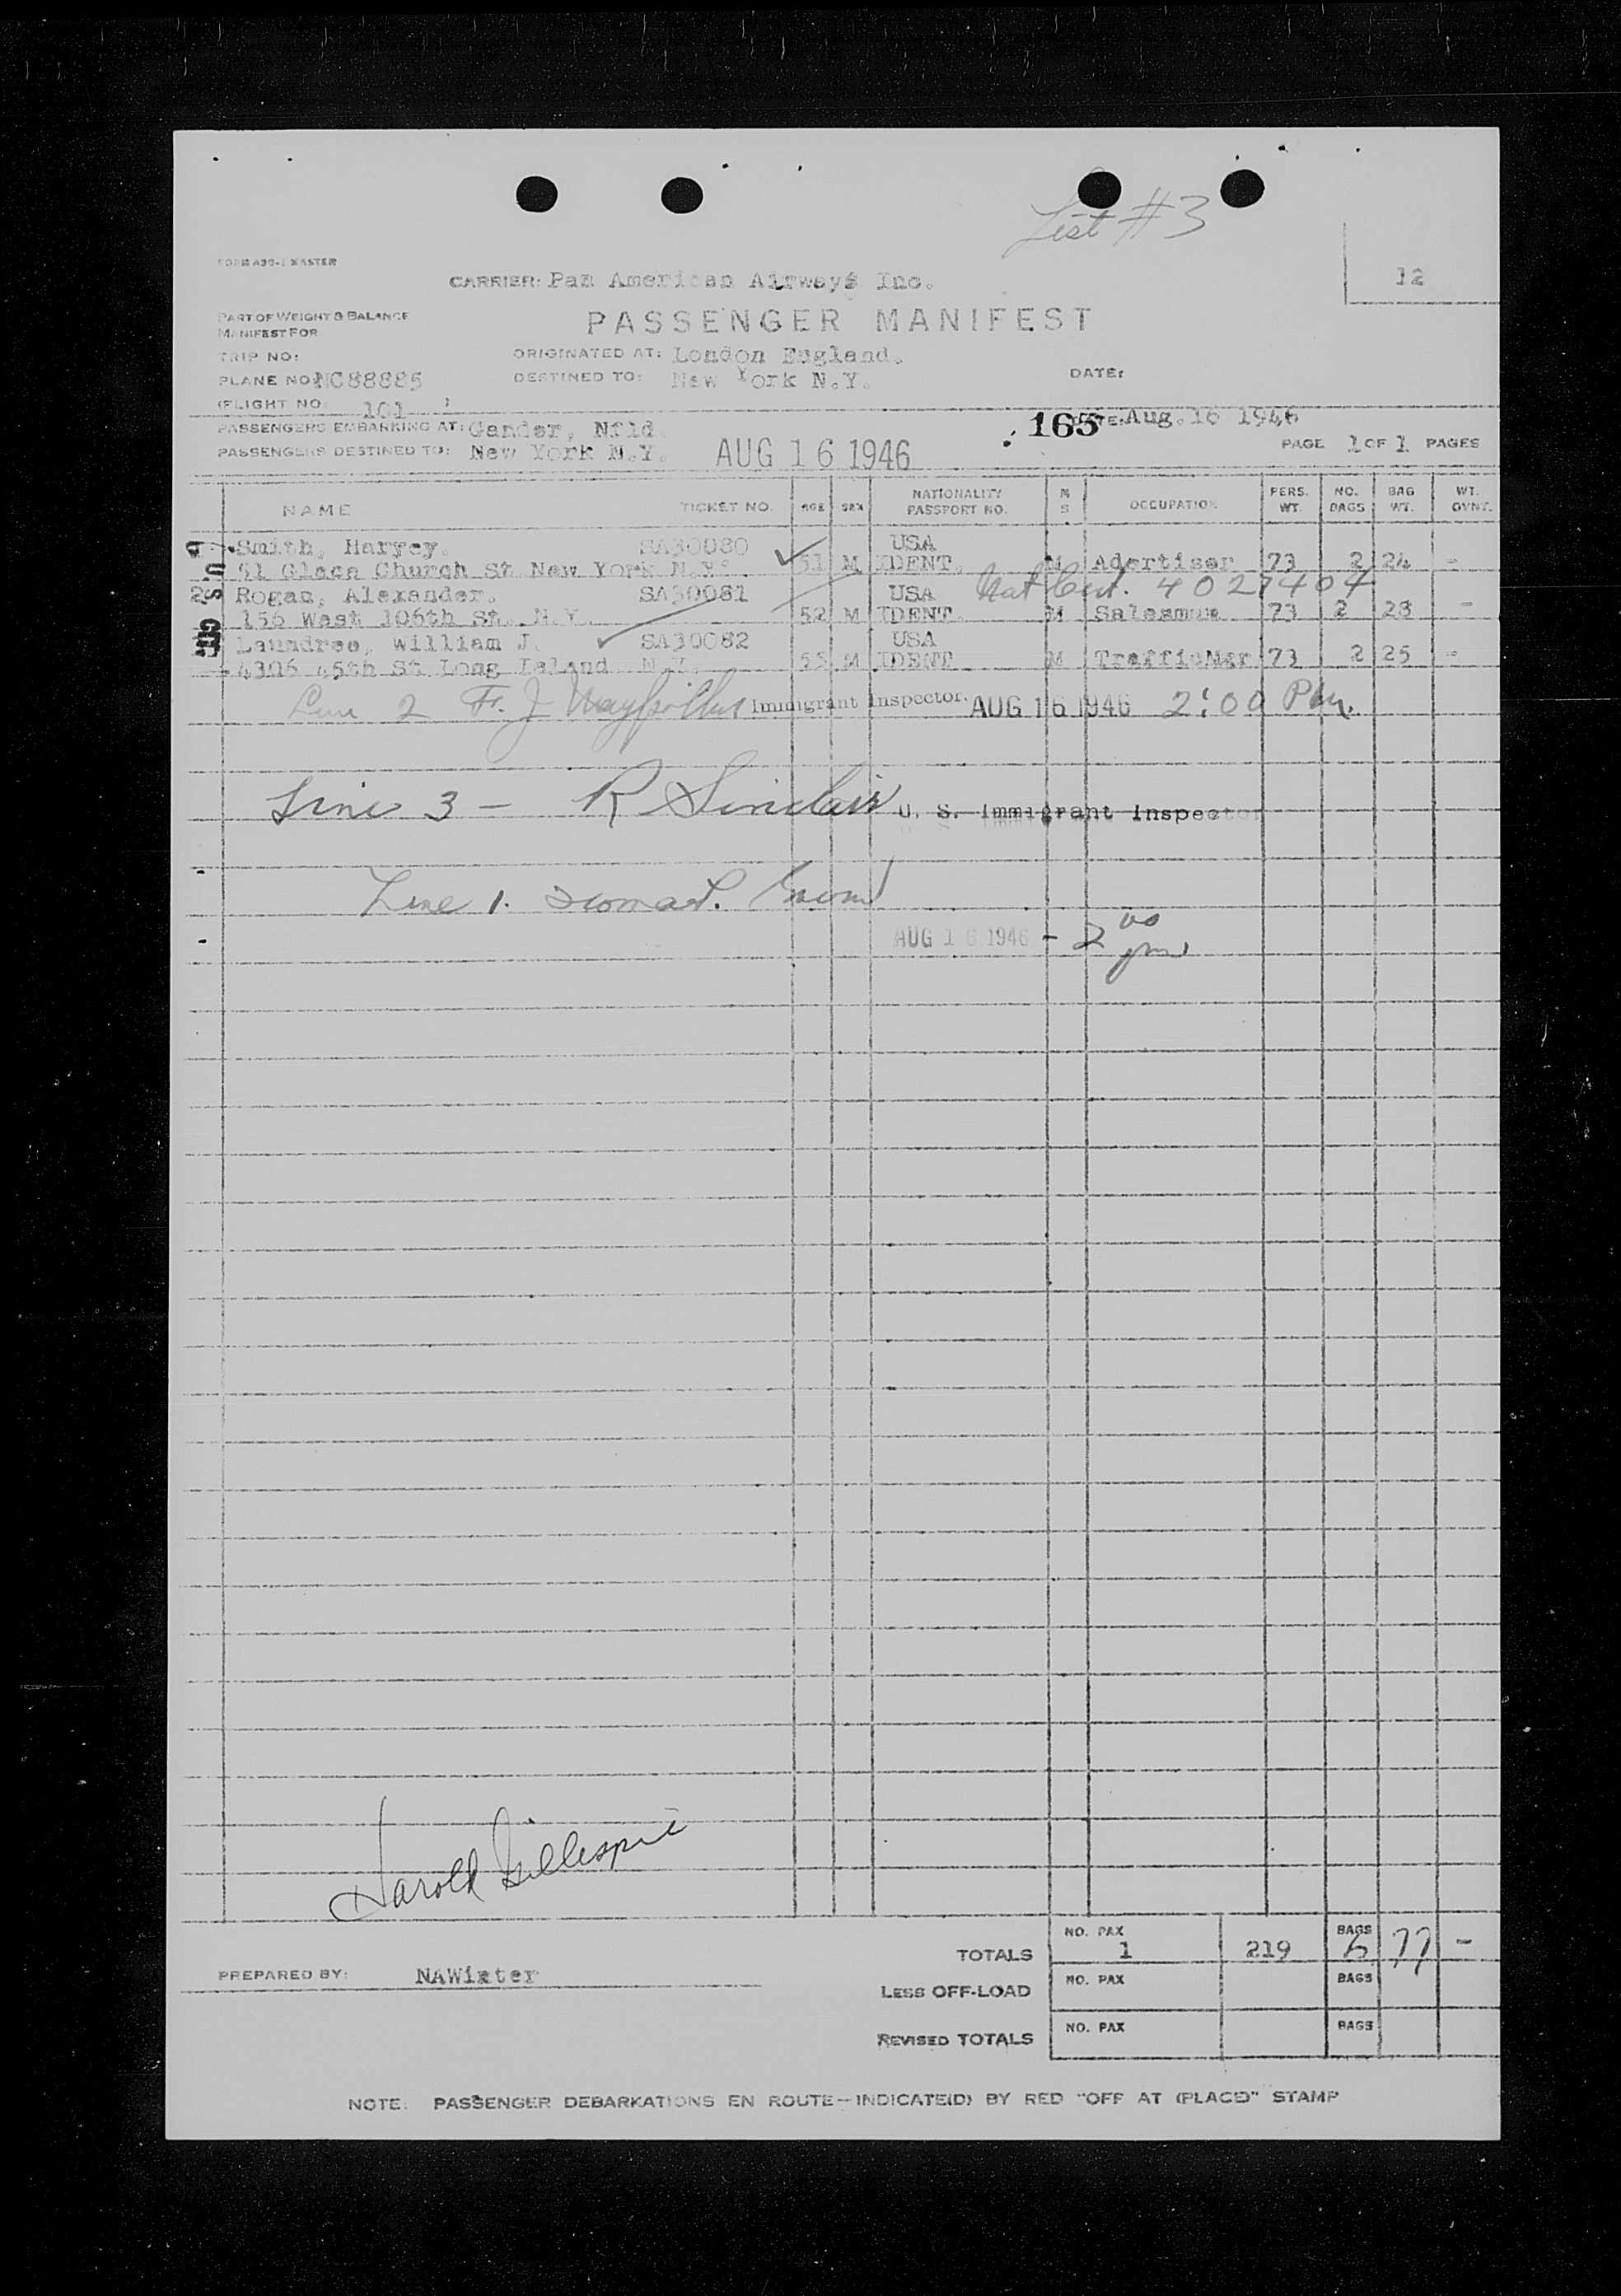 List #3
FORM A30-1 MASTER
12
CARRIER: Pan American Airways Inc.
PART OF WEIGHT & BALANCE
MANIFEST FOR
PASSENGER MANIFEST
TRIP NO:
ORIGINATED AT: London England.
PLANE NO: NC88885
DESTINED TO: New York N.Y.
DATE:
FLIGHT NO. 101
PASSENGERS EMBARKING AT: Gander, Nfld
165
DATE: Aug. 16 1946
PASSENGERS DESTINED TO: New York N.Y.
AUG 16 1946
PAGE 1 OF 1 PAGES
NAME TICKET NO. AGE SEX NATIONALITY PASSPORT NO. M S OCCUPATION PERS. WT. NO. BAGS BAG WT. WT. OVNT.
Smith, Harvey. SA30080 USA
51 Church St New York N.Y. 51 M IDENT. M Adertiser 73 2 24 -
2 Rogan, Alexander. SA30081 USA Nat Cert. 4027404
156 West 106th St. N.Y. 52 M IDENT. M Salesman 73 2 28 -
Laundree, William J. SA30082 USA
4306 45th St Long Island N.Y. 55 M IDENT M TrafficMgr 73 2 25 -
Line 2 F. J. Immigrant Inspector. AUG 16 1946 2:00 Pm.
Line 3 - R Sinclair U. S. Immigrant Inspector
Line 1.
AUG 16 1946 - 2 00 pm
Harold Gillespie
TOTALS NO. PAX 1 219 BAGS 6 77 -
PREPARED BY: NAWinter
LESS OFF-LOAD NO. PAX BAGS
REVISED TOTALS NO. PAX BAGS
NOTE: PASSENGER DEBARKATIONS EN ROUTE-INDICATE(D) BY RED "OFF AT (PLACE)" STAMP